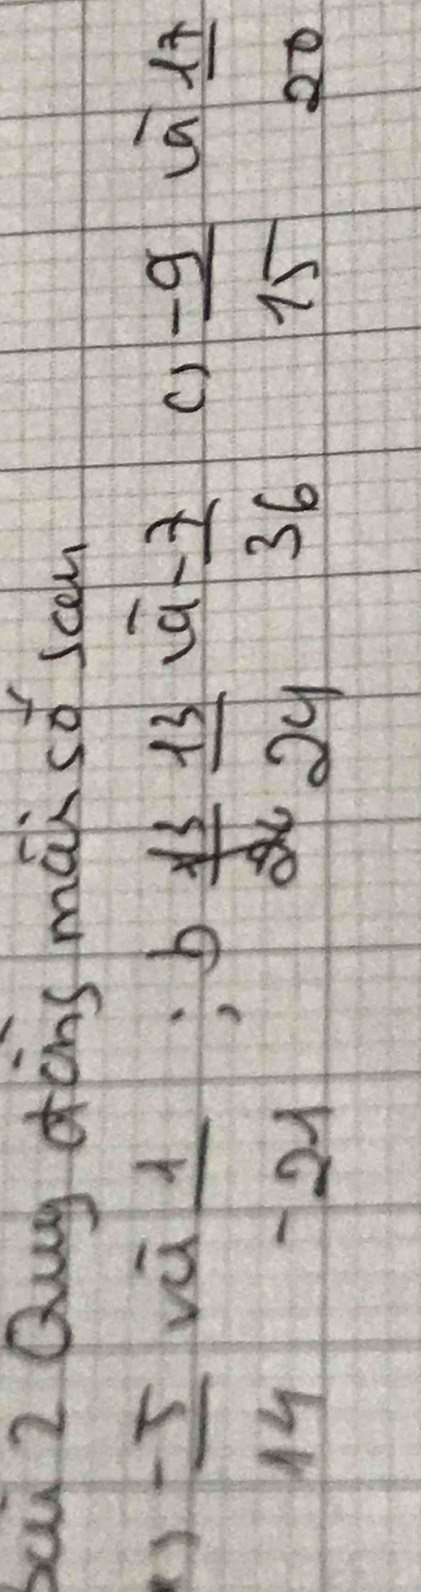 Bài 2 Quy đồng mẫu số sau
a) -5/14 và 1/-21 ; b 13/24 và -7/36 c) -9/15 và 17/20